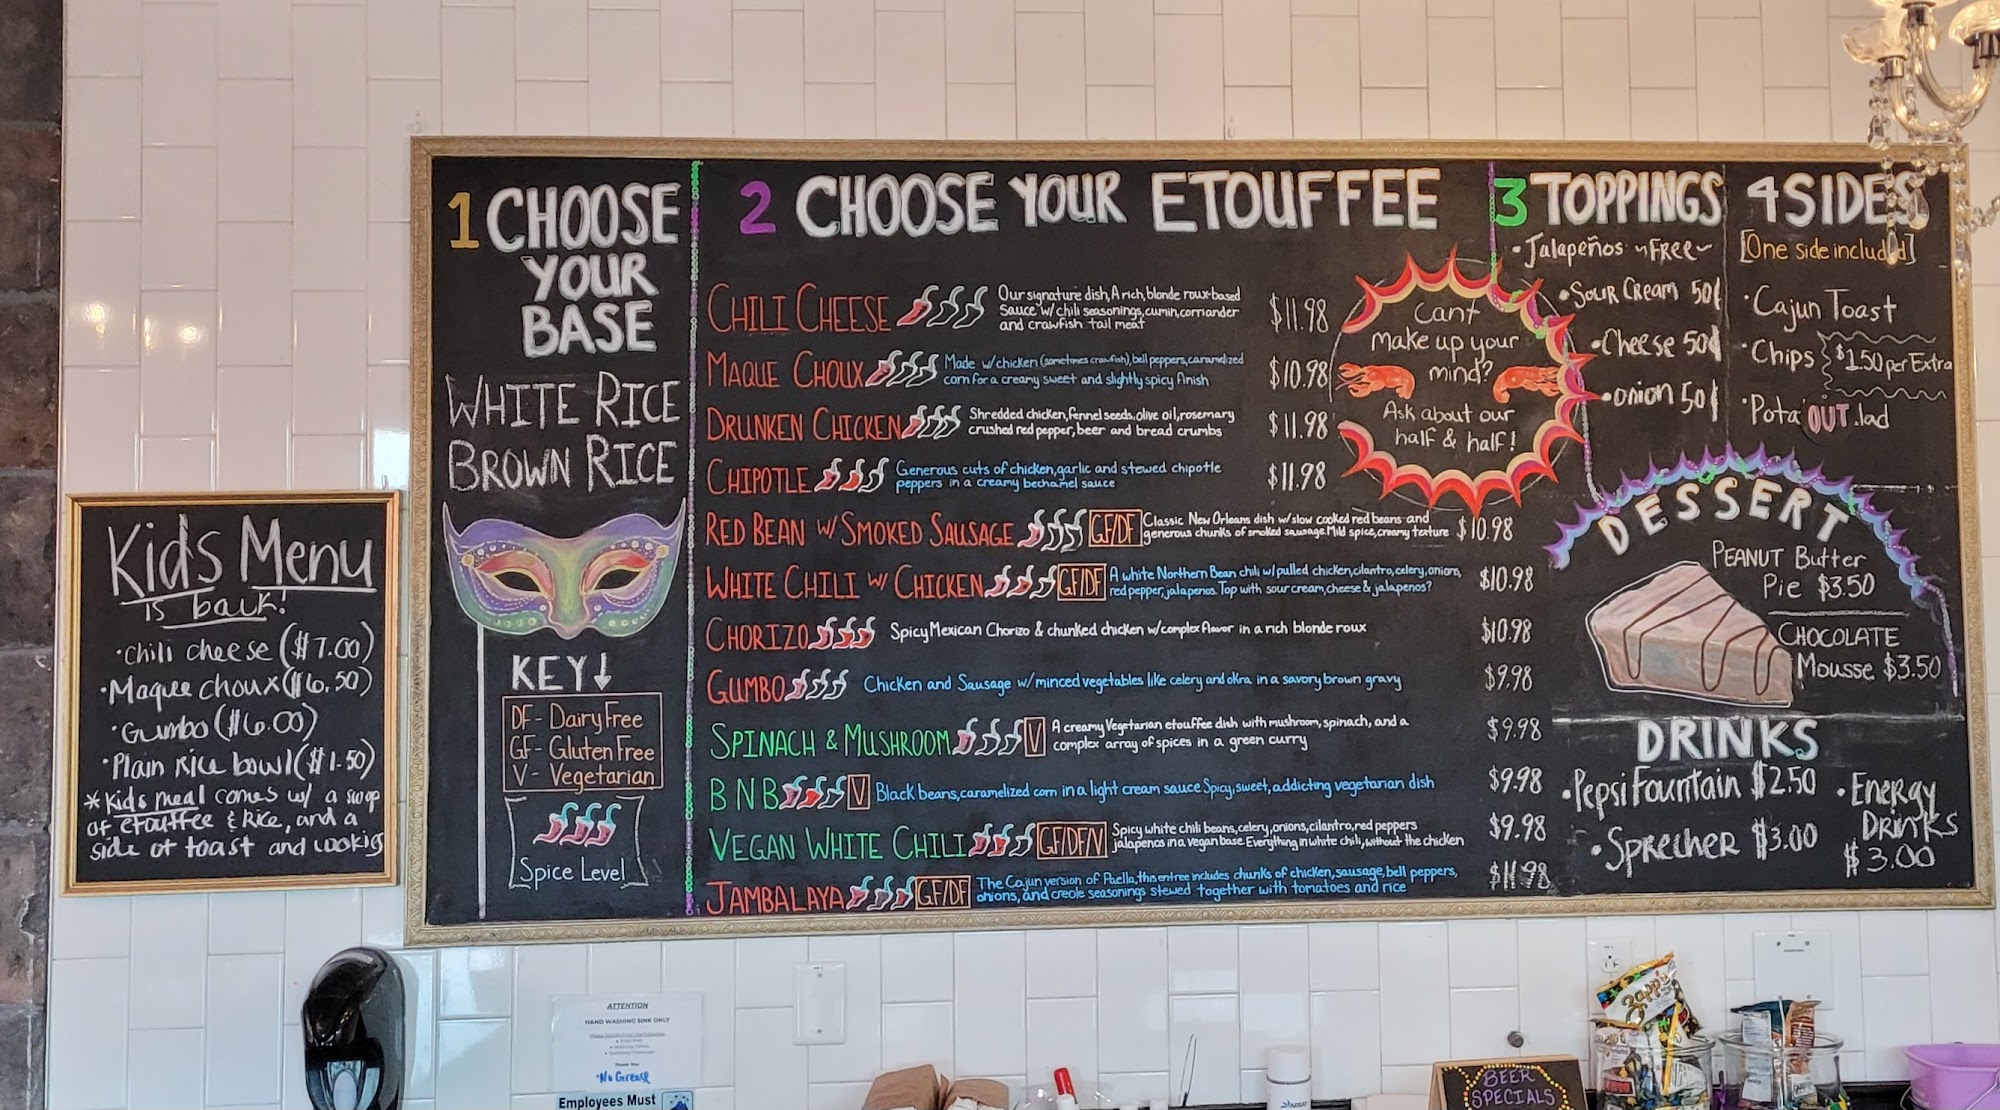 1 CHOOSE
YOUR
BASE
WHITE RICE
BROWN RICE
KEY↓
DF - Dairy Free
GF - Gluten Free
V - Vegetarian
Spice Level
2 CHOOSE YOUR ETOUFFEE
CHILI CHEESE
Our signature dish, A rich, blonde roux-based
Sauce w/ chili seasonings, cumin, corriander
and crawfish tail meat
$11.98
MAQUE CHOUX
Made w/chicken (sometimes crawfish), bell peppers, caramelized
corn for a creamy sweet and slightly spicy finish
$10.98
DRUNKEN CHICKEN
Shredded chicken, fennel seeds, olive oil, rosemary
crushed red pepper, beer and bread crumbs
$11.98
CHIPOTLE
Generous cuts of chicken, garlic and stewed chipotle
peppers in a creamy bechamel sauce
$11.98
RED BEAN w/ SMOKED SAUSAGE GF/DF
Classic New Orleans dish w/slow cooked red beans and
generous chunks of smoked sausage. Mild spice, creamy texture
$10.98
WHITE CHILI w/ CHICKEN GF/DF
A white Northern Bean chili w/pulled chicken, cilantro, celery, onions,
red pepper, jalapenos. Top with sour cream, cheese & jalapenos?
$10.98
CHORIZO
Spicy Mexican Chorizo & chunked chicken w/complex flavor in a rich blonde roux
$10.98
GUMBO
Chicken and Sausage w/minced vegetables like celery and okra in a savory brown gravy
$9.98
SPINACH & MUSHROOM V
A creamy Vegetarian etouffee dish with mushroom, spinach, and a
complex array of spices in a green curry
$9.98
BNB V
Black beans, caramelized corn in a light cream sauce Spicy, sweet, addicting vegetarian dish
$9.98
VEGAN WHITE CHILI GF/DF/V
Spicy white chili beans, celery, onions, cilantro, red peppers
jalapenos in a vegan base. Everything in white chili, without the chicken
$9.98
JAMBALAYA GF/DF
The Cajun version of Paella, this entree includes chunks of chicken, sausage, bell peppers,
onions, and creole seasonings stewed together with tomatoes and rice
$11.98
Cant
Make up your
mind?
Ask about our
half & half!
3 TOPPINGS
• Jalapeños ~FREE~
• Sour Cream 50¢
• Cheese 50¢
• onion 50¢
4 SIDES
[One side included]
• Cajun Toast
• Chips
$1.50 per Extra
• Pota OUT .lad
DESSERT
PEANUT Butter
Pie $3.50
CHOCOLATE
Mousse $3.50
DRINKS
• Pepsi Fountain $2.50
• Sprecher $3.00
• ENERGY
DRINKS
$3.00
Kids Menu
is back!
• chili cheese ($7.00)
• Maque choux ($6.50)
• Gumbo ($6.00)
• Plain rice bowl ($1.50)
* Kids meal comes w/ a scoop
of etouffee & Rice, and a
side of toast and cookies
ATTENTION
HAND WASHING SINK ONLY
Thank You
• No Grease
Employees Must
Zapp's
BEER
SPECIALS